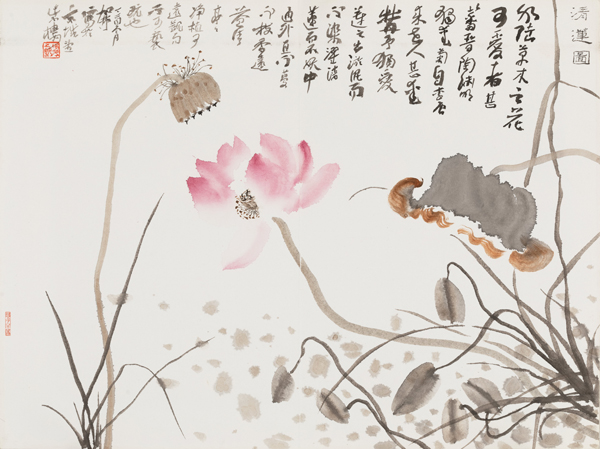 清蓮圖
水陸草木之花
可愛者甚
蕃晉陶淵明
獨愛菊自李唐
來世人甚愛
牡丹予獨愛
蓮之出淤泥而
不染濯清
蓮而不妖中
通外直不蔓
不枝香遠
益清
亭亭
淨植可
遠觀而
不可褻
玩
丁酉冬月